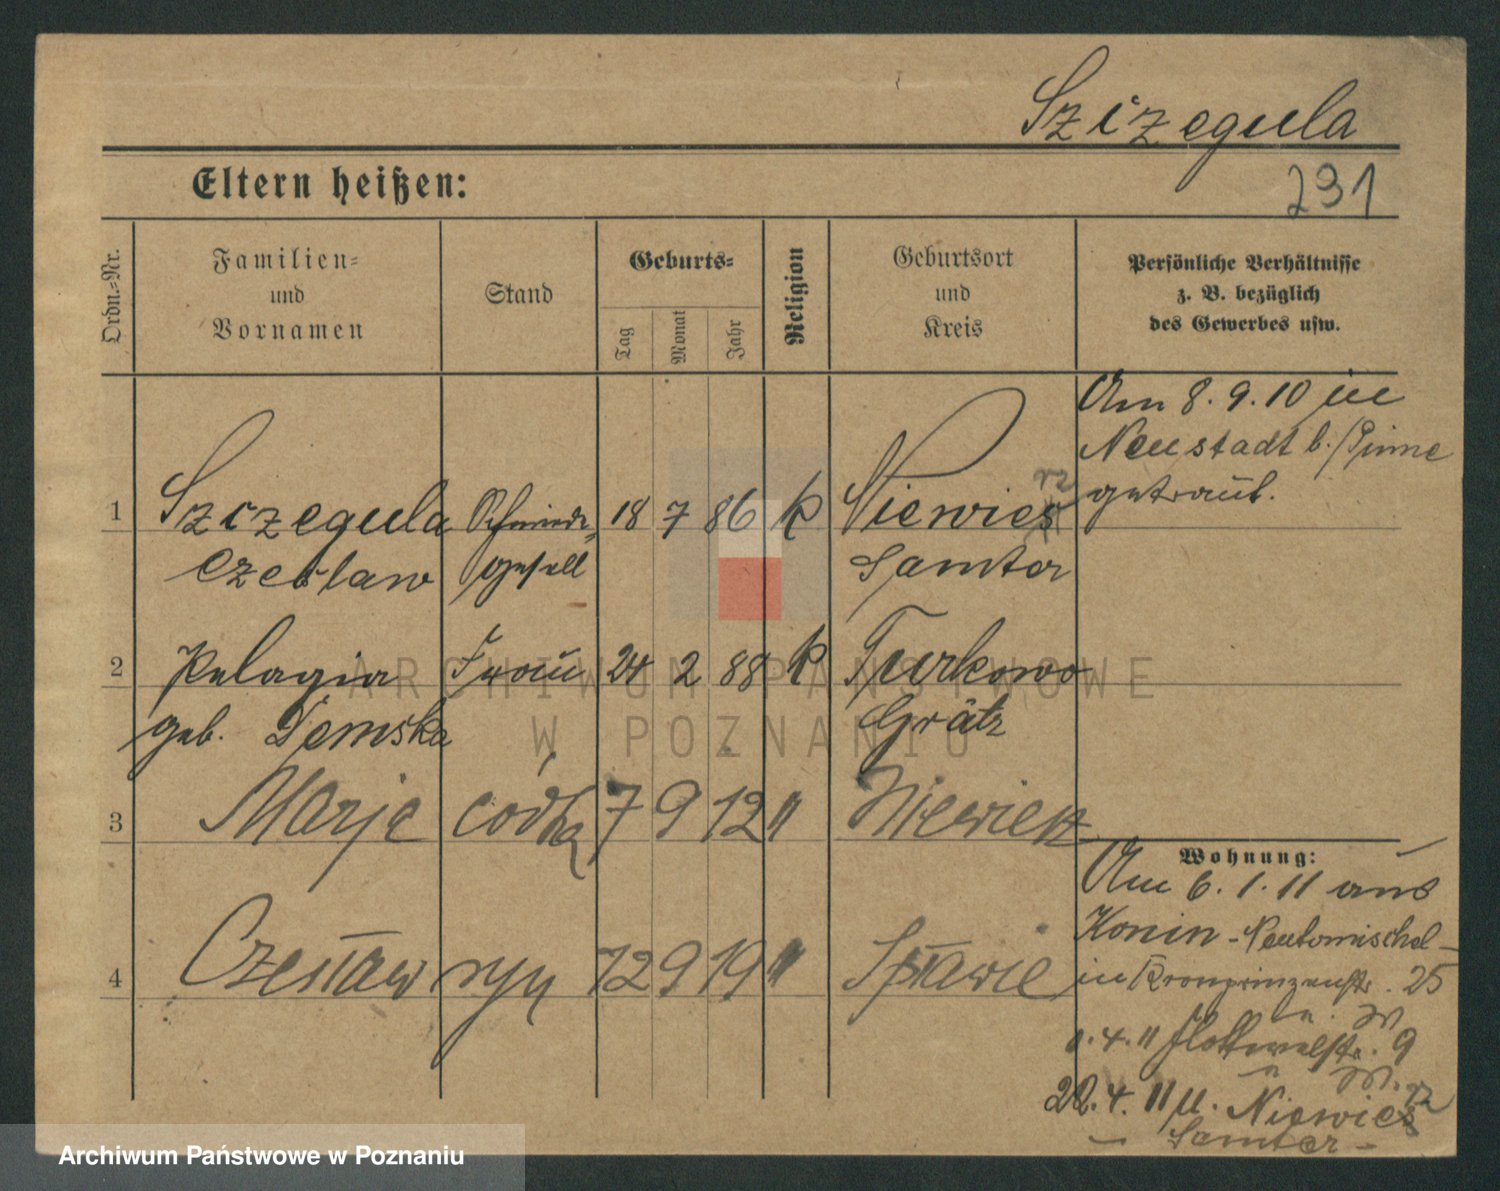 Szizegula
291
Eltern heißen:
Ordn.-Nr.
Familien-
und
Vornamen
Stand
Geburts-
Tag
Monat
Jahr
Religion
Geburtsort
und
Kreis
Persönliche Verhältnisse
z. B. bezüglich
des Gewerbes usw.
Am 8. 9. 10 in
Neustadt b./Pinne
getraut.
1 Szizegula Schmiede- 18 7 86 k Niewiesz
Czeslaw gesell Samter
2 Pelagia Frau 24 2 88 k Turkowo
geb. Demska Grätz
3 Marje córka 7 9 12 " Niewiesz
4 Czesław syn 12 9 19 " Spławie
Wohnung:
Am 6. 1. 11 aus
Konin - Neutomischel -
in Kronprinzenstr. 25
1. 4. 11 Flottwellstr. 9
22. 4. 11 n. Niewiesz
- Samter -
ARCHIWUM PAŃSTWOWE
W POZNANIU
Archiwum Państwowe w Poznaniu